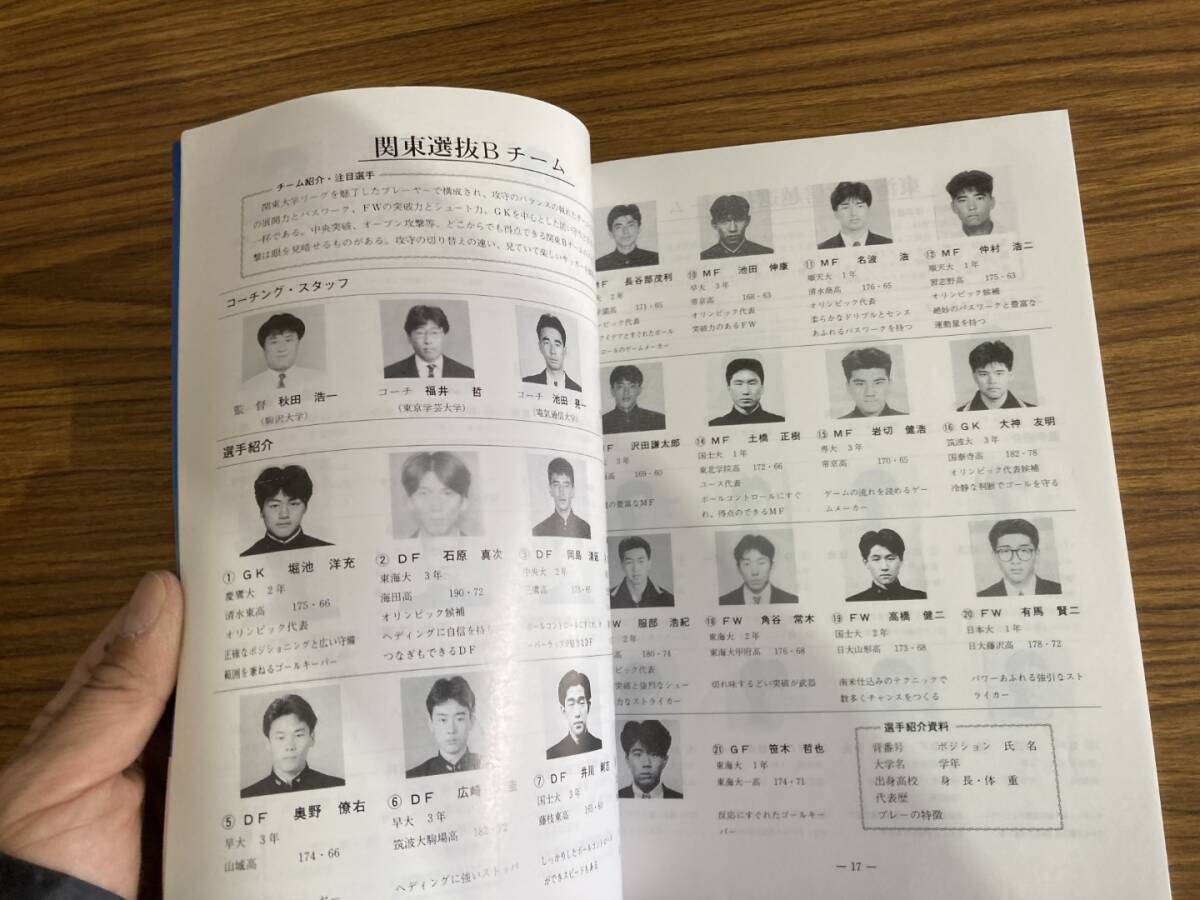 関東選抜Bチーム
チーム紹介・注目選手
関東大学リーグを魅了したプレーヤーで構成され、攻守のバランスの取れたチー
の展開力とパスワーク、FWの突破力とシュート力、GKを中心とした
一杯である。中央突破、オープン攻撃等、どこからでも得点できる関東Bチームの
撃は眼を見晴せるものがある。攻守の切り替えの速い、見ていて楽しいサッカーを
コーチング・スタッフ
監督 秋田 浩一
(駒沢大学)
コーチ 福井 哲
(東京学芸大学)
コーチ 池田 晃一
(電気通信大学)
選手紹介
① GK 堀池 洋充
慶應大 2年
清水東高 175・66
オリンピック代表
正確なポジショニングと広い守備
範囲を兼ねるゴールキーパー
② DF 石原 真次
東海大 3年
海田高 190・72
オリンピック候補
ヘディングに自信を持ち
つなぎもできるDF
③ DF 岡島 清
中央大 2年
三鷹高 173・65
⑤ DF 奥野 僚右
早大 3年
山城高 174・66
⑥ DF 広崎 圭
早大 3年
筑波大駒場高 182・72
ヘディングに強いストッパ
⑦ DF 井川
国士大 3年
藤枝東高 165・60
しっかりしたボールコントロール
ができスピードもある
MF 長谷部茂利
2年
学園高 171・65
ンピック代表
アイデアとすぐれたボール
ロールのゲームメーカー
⑩ MF 池田 伸康
早大 3年
帝京高 168・63
オリンピック代表
突破力のあるFW
⑪ MF 名波 浩
順天大 1年
清水商高 176・65
オリンピック代表
柔らかなドリブルとセンス
あふれるパスワークを持つ
⑫ MF 仲村 浩二
順天大 1年
習志野高 175・63
オリンピック候補
絶妙のパスワークと豊富な
運動量を持つ
MF 沢田謙太郎
3年
高 169・60
の豊富なMF
⑭ MF 土橋 正樹
国士大 1年
東北学院高 172・66
ユース代表
ボールコントロールにすぐ
れ、得点のできるMF
⑮ MF 岩切 健浩
専大 3年
帝京高 170・65
ゲームの流れを読めるゲー
ムメーカー
⑯ GK 大神 友明
筑波大 3年
国泰寺高 182・78
オリンピック代表候補
冷静な判断でゴールを守る
FW 服部 浩紀
2年
高 180・74
ピック代表
突破と強烈なシュー
力なストライカー
⑱ FW 角谷 常木
東海大 2年
東海大甲府高 176・68
切れ味するどい突破が武器
⑲ FW 高橋 健二
国士大 2年
日大山形高 173・68
南米仕込みのテクニックで
数多くチャンスをつくる
⑳ FW 有馬 賢二
日本大 1年
日大藤沢高 178・72
パワーあふれる強引なスト
ライカー
㉑ GF 笹木 哲也
東海大 1年
東海大一高 174・71
反応にすぐれたゴールキー
パー
選手紹介資料
背番号 ポジション 氏 名
大学名 学年
出身高校 身長・体重
代表歴
プレーの特徴
― 17 ―